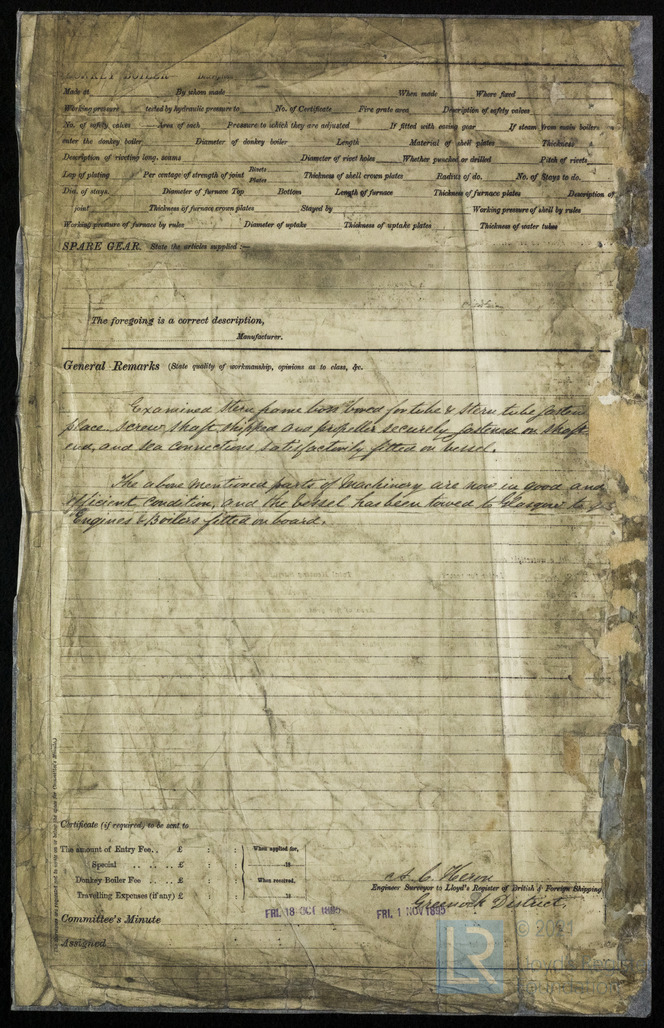 DONKEY BOILER Description
Made at By whom made When made Where fixed
Working pressure tested by hydraulic pressure to No. of Certificate Fire grate area Description of safety valves
No. of safety valves Area of each Pressure to which they are adjusted If fitted with easing gear If steam from main boilers
enter the donkey boiler Diameter of donkey boiler Length Material of shell plates Thickness
Description of riveting long. seams Diameter of rivet holes Whether punched or drilled Pitch of rivets
Lap of plating Per centage of strength of joint Rivets Plates Thickness of shell crown plates Radius of do. No. of Stays to do.
Dia. of stays. Diameter of furnace Top Bottom Length of furnace Thickness of furnace plates Description of
joint Thickness of furnace crown plates Stayed by Working pressure of shell by rules
Working pressure of furnace by rules Diameter of uptake Thickness of uptake plates Thickness of water tubes
SPARE GEAR. State the articles supplied:—
The foregoing is a correct description,
Manufacturer.
General Remarks (State quality of workmanship, opinions as to class, &c.
Examined stern frame boss bored for tube & stern tube fasten
place. screw shaft shipped and propeller securely fastened on shaft
end, and sea connections satisfactorily fitted on vessel.
The above mentioned parts of Machinery are now in good and
efficient condition, and the vessel has been towed to Glasgow to
Engines & Boilers fitted on board.
Certificate (if required) to be sent to
The amount of Entry Fee.. £ : : When applied for,
Special .. .. .. £ : : 18
Donkey Boiler Fee .. .. £ : : When received,
Travelling Expenses (if any) £ : : 18
A. C. Heron
Engineer Surveyor to Lloyd's Register of British & Foreign Shipping
Greenock District.
Committee's Minute FRI. 18 OCT 1895 FRI. 1 NOV 1895
Assigned
LR
© 2021
Lloyd's Register
Foundation